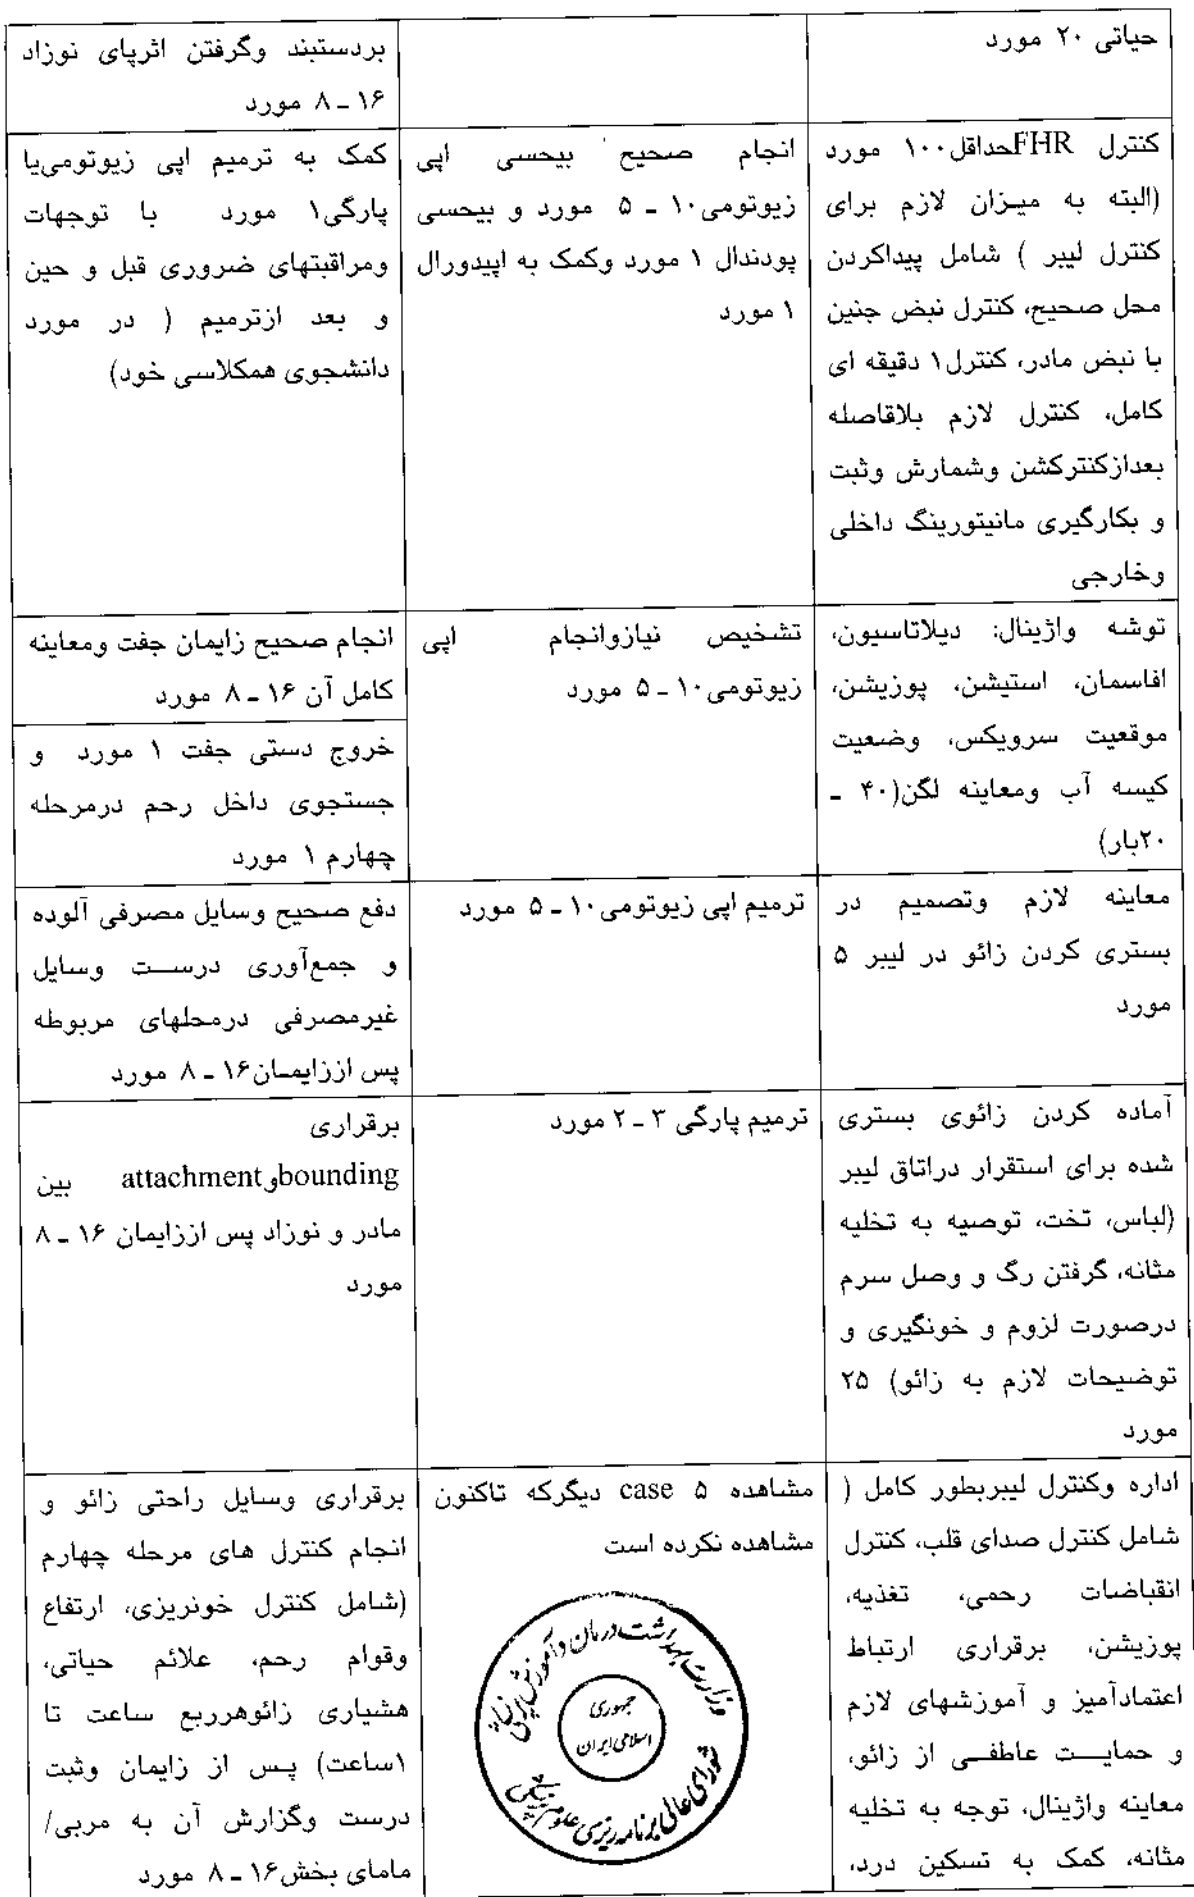 حیاتی ۲۰ مورد
بردستبند وگرفتن اثرپای نوزاد
۱۶ ـ ۸ مورد
کنترل FHRحداقل۱۰۰ مورد
(البته به میزان لازم برای
کنترل لیبر ) شامل پیداکردن
محل صحیح، کنترل نبض جنین
با نبض مادر، کنترل۱ دقیقه ای
کامل، کنترل لازم بلافاصله
بعدازکنترکشن وشمارش وثبت
و بکارگیری مانیتورینگ داخلی
وخارجی
انجام صحیح بیحسی اپی
زیوتومی۱۰ ـ ۵ مورد و بیحسی
پودندال ۱ مورد وکمک به اپیدورال
۱ مورد
کمک به ترمیم اپی زیوتومی‌یا
پارگی۱ مورد با توجهات
ومراقبتهای ضروری قبل و حین
و بعد ازترمیم ( در مورد
دانشجوی همکلاسی خود)
توشه واژینال: دیلاتاسیون،
افاسمان، استیشن، پوزیشن،
موقعیت سرویکس، وضعیت
کیسه آب ومعاینه لگن(۴۰ ـ
۲۰بار)
تشخیص نیازوانجام اپی
زیوتومی۱۰ ـ ۵ مورد
انجام صحیح زایمان جفت ومعاینه
کامل آن ۱۶ ـ ۸ مورد
خروج دستی جفت ۱ مورد و
جستجوی داخل رحم درمرحله
چهارم ۱ مورد
معاینه لازم وتصمیم در
بستری کردن زائو در لیبر ۵
مورد
ترمیم اپی زیوتومی۱۰ ـ ۵ مورد
دفع صحیح وسایل مصرفی آلوده
و جمع‌آوری درست وسایل
غیرمصرفی درمحلهای مربوطه
پس اززایمان۱۶ ـ ۸ مورد
آماده کردن زائوی بستری
شده برای استقرار دراتاق لیبر
(لباس، تخت، توصیه به تخلیه
مثانه، گرفتن رگ و وصل سرم
درصورت لزوم و خونگیری و
توضیحات لازم به زائو) ۲۵
مورد
ترمیم پارگی ۳ ـ ۲ مورد
برقراری
boundingوattachment بین
مادر و نوزاد پس اززایمان ۱۶ ـ ۸
مورد
اداره وکنترل لیبربطور کامل (
شامل کنترل صدای قلب، کنترل
انقباضات رحمی، تغذیه،
پوزیشن، برقراری ارتباط
اعتمادآمیز و آموزشهای لازم
و حمایت عاطفی از زائو،
معاینه واژینال، توجه به تخلیه
مثانه، کمک به تسکین درد،
مشاهده ۵ case دیگرکه تاکنون
مشاهده نکرده است
وزارت بهداشت درمان وآموزش پزشکی
جمهوری
اسلامی ایران
شورای عالی برنامه ریزی علوم پزشکی
برقراری وسایل راحتی زائو و
انجام کنترل های مرحله چهارم
(شامل کنترل خونریزی، ارتفاع
وقوام رحم، علائم حیاتی،
هشیاری زائوهرربع ساعت تا
۱ساعت) پس از زایمان وثبت
درست وگزارش آن به مربی/
مامای بخش۱۶ ـ ۸ مورد